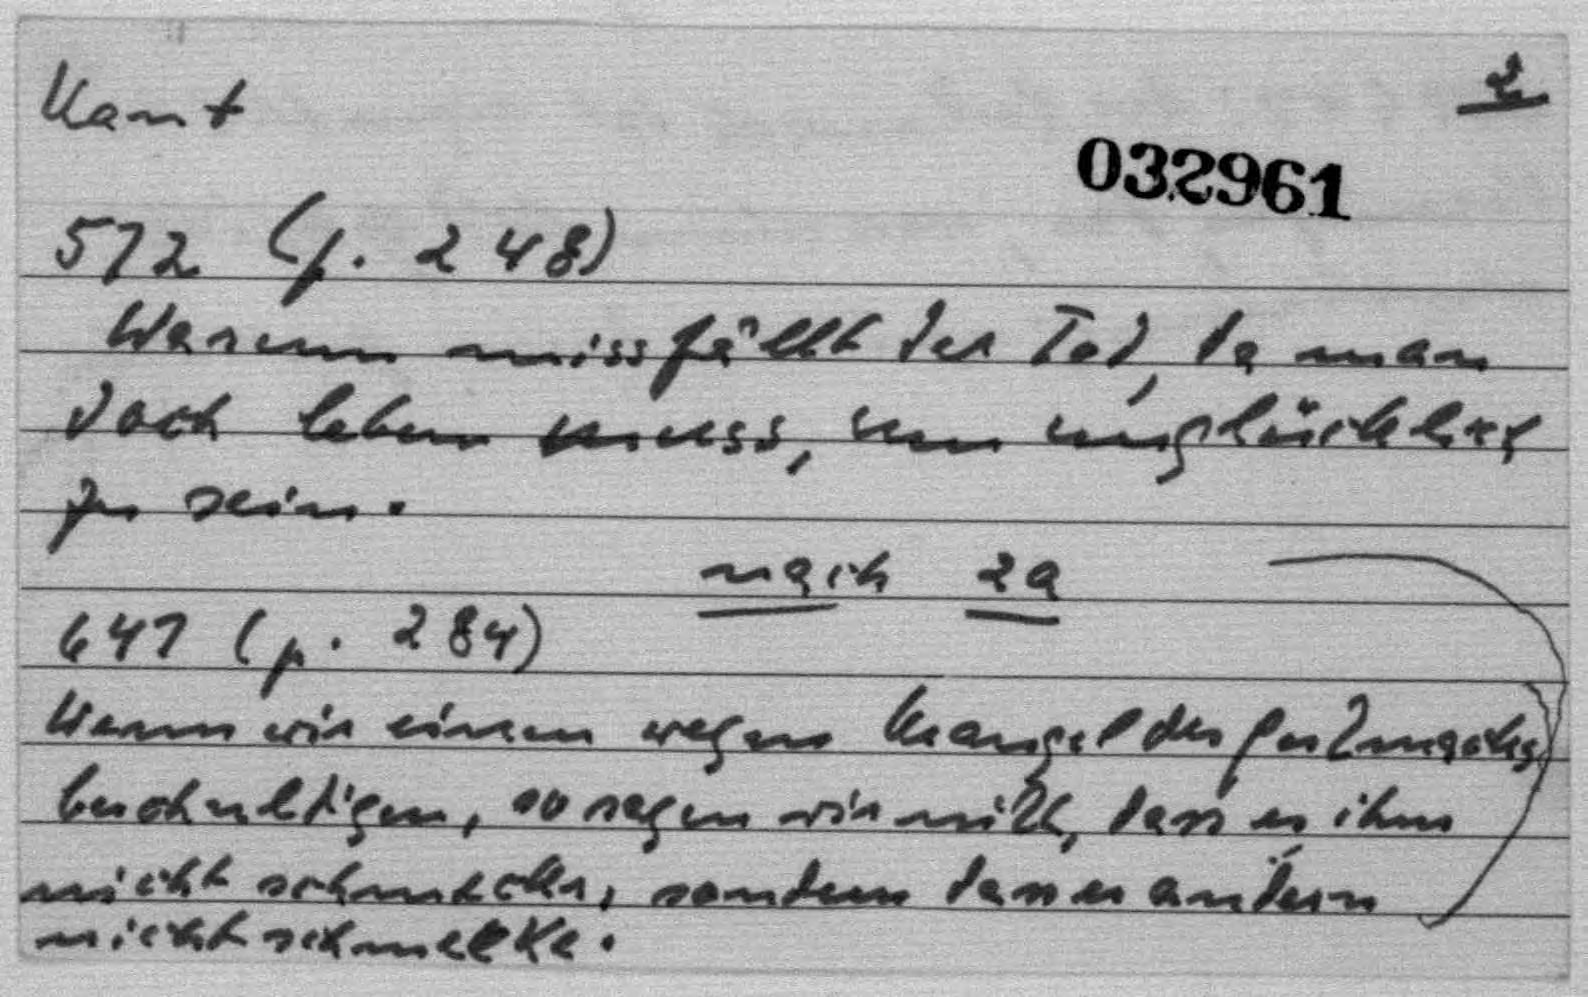 Kant
2
032961
572 (p. 248)
Warum missfällt der Tod, da man
doch leben muss, um unglücklich
zu sein.
nach 2a
647 (p. 284)
Wenn wir einen wegen Mangel des Geschmacks
beschuldigen, so sagen wir nicht, dass es ihm
nicht schmecke, sondern dass es andern
nicht schmecke.